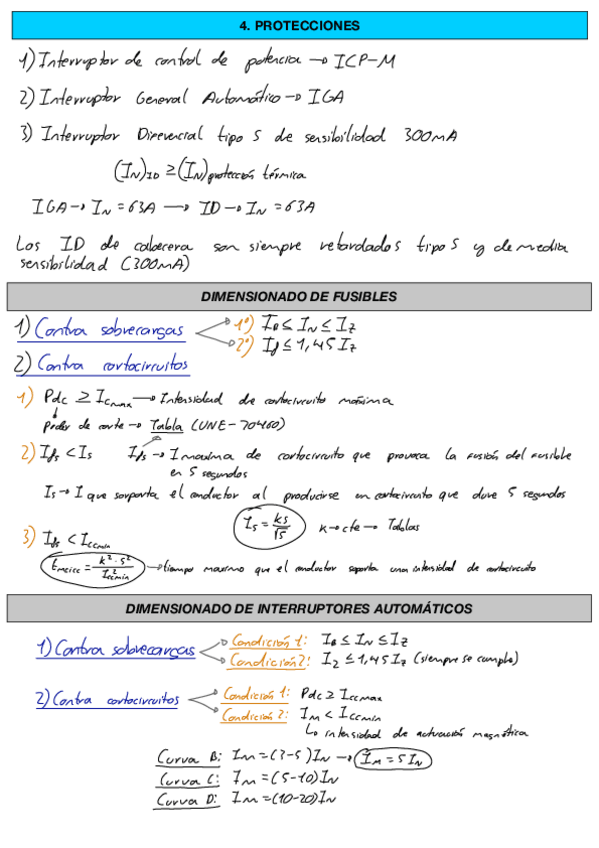 4. PROTECCIONES
1) Interruptor de control de potencia → ICP-M
2) Interruptor General Automático → IGA
3) Interruptor Diferencial tipo S de sensibilidad 300mA
(IN)ID ≥ (IN)protección térmica
IGA → IN = 63A → ID → IN = 63A
Los ID de cabecera son siempre retardados tipo S y de media
sensibilidad (300mA)
DIMENSIONADO DE FUSIBLES
1) Contra sobrecargas
1º) IB ≤ IN ≤ IZ
2º) If ≤ 1,45 IZ
2) Contra cortocircuitos
1) Pdc ≥ ICmax → Intensidad de cortocircuito máxima
Poder de corte → Tabla (UNE-70460)
2) If5 < I5 If5 → I maxima de cortocircuito que provoca la fusión del fusible
en 5 segundos
I5 → I que soporta el conductor al producirse un cortocircuito que dure 5 segundos
I5 = KS/√5 K → cte → Tablas
3) If5 < Iccmin
tmcicc = K²·S²/Iccmin² → tiempo maximo que el conductor soporta una intensidad de cortocircuito
DIMENSIONADO DE INTERRUPTORES AUTOMÁTICOS
1) Contra sobrecargas
Condición 1: IB ≤ IN ≤ IZ
Condición 2: I2 ≤ 1,45 IZ (siempre se cumple)
2) Contra cortocircuitos
Condición 1: Pdc ≥ Iccmax
Condición 2: Im < Iccmin
↳ intensidad de actuación magnética
Curva B: Im = (3-5) IN → Im = 5 IN
Curva C: Im = (5-10) IN
Curva D: Im = (10-20) IN